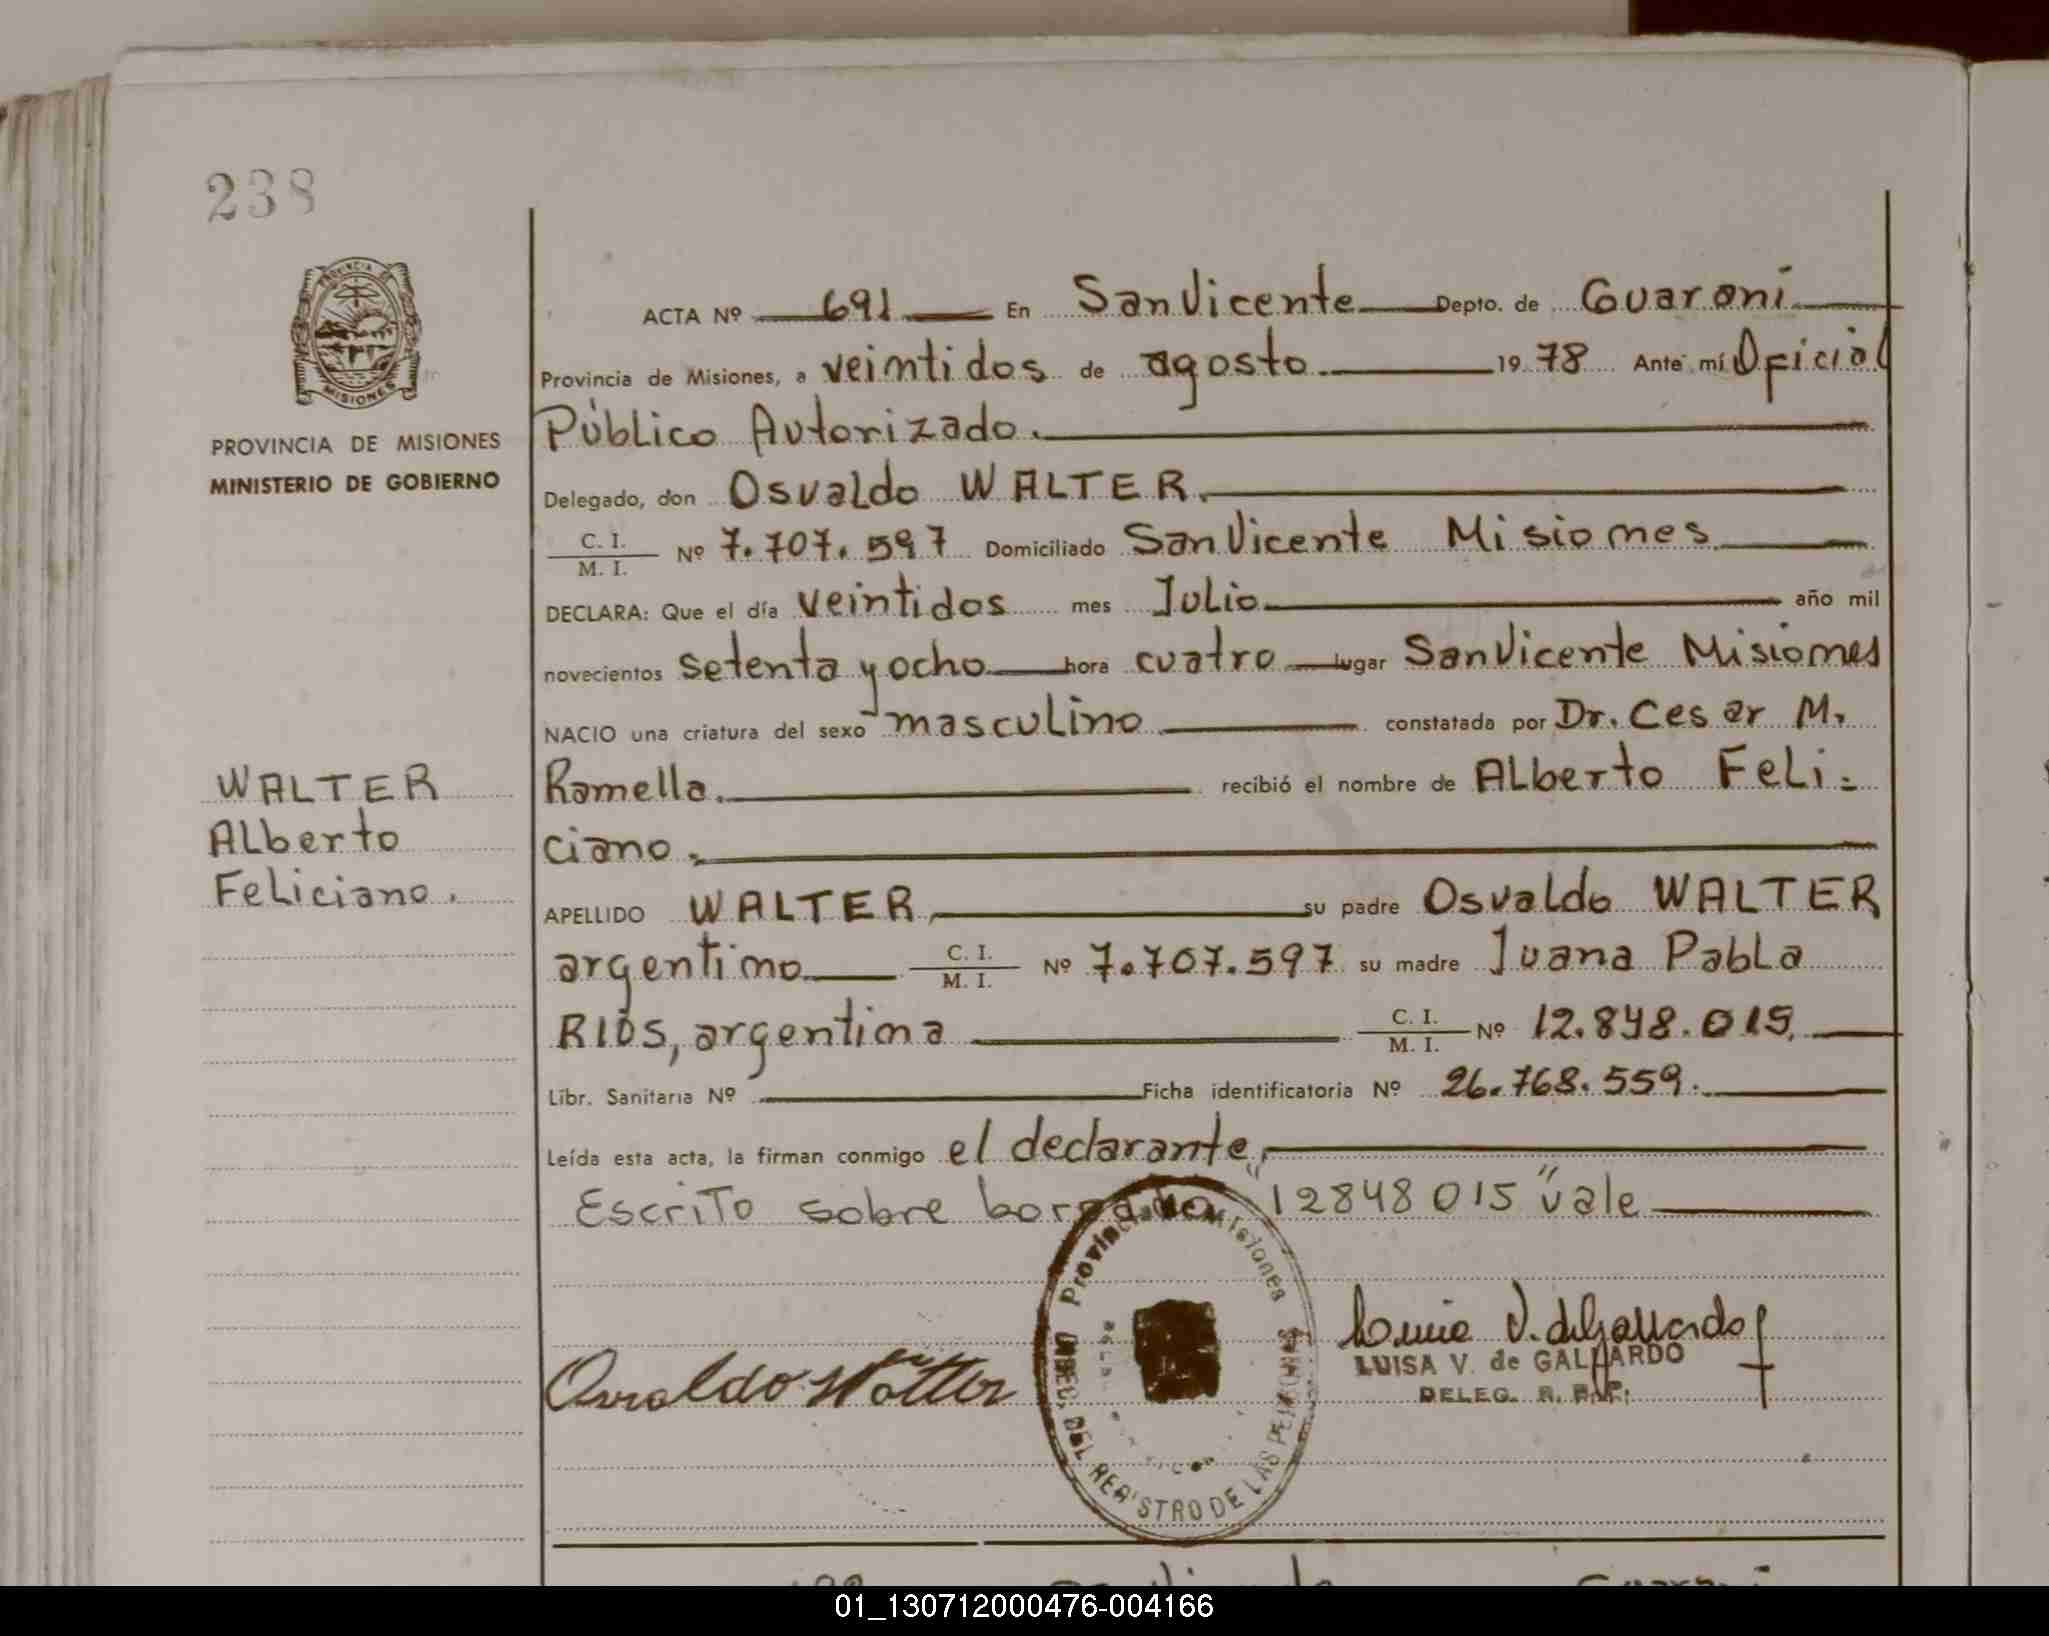 238
PROVINCIA DE
MISIONES
PROVINCIA DE MISIONES
MINISTERIO DE GOBIERNO
WALTER
ALberto
FeLiciano.
ACTA Nº 691 En San Vicente Depto. de Guarani
Provincia de Misiones, a veintidos de agosto 1978 Ante mí Oficial
Público Autorizado.
Delegado, don Osvaldo WALTER.
C. I.
M. I. Nº 7.707.597 Domiciliado San Vicente Misiones
DECLARA: Que el día veintidos mes Julio año mil
novecientos setenta y ocho hora cuatro lugar San Vicente Misiones
NACIO una criatura del sexo masculino constatada por Dr. Cesar M.
Ramella. recibió el nombre de ALberto FeLi=
ciano.
APELLIDO WALTER su padre Osvaldo WALTER
argentino C. I.
M. I. Nº 7.707.597 su madre Juana PabLa
RIOS, argentina C. I.
M. I. Nº 12.848.015.
Libr. Sanitaria Nº Ficha identificatoria Nº 26.768.559.
Leída esta acta, la firman conmigo el declarante,
Escrito sobre borrado "12848015" vale
Provincia de Misiones
DEL REGISTRO DE LAS PERSONAS
Osvaldo Walter
Luisa V. de Gallardo
LUISA V. de GALLARDO
DELEG. R. P.
San Vicente Guarani
01_130712000476-004166